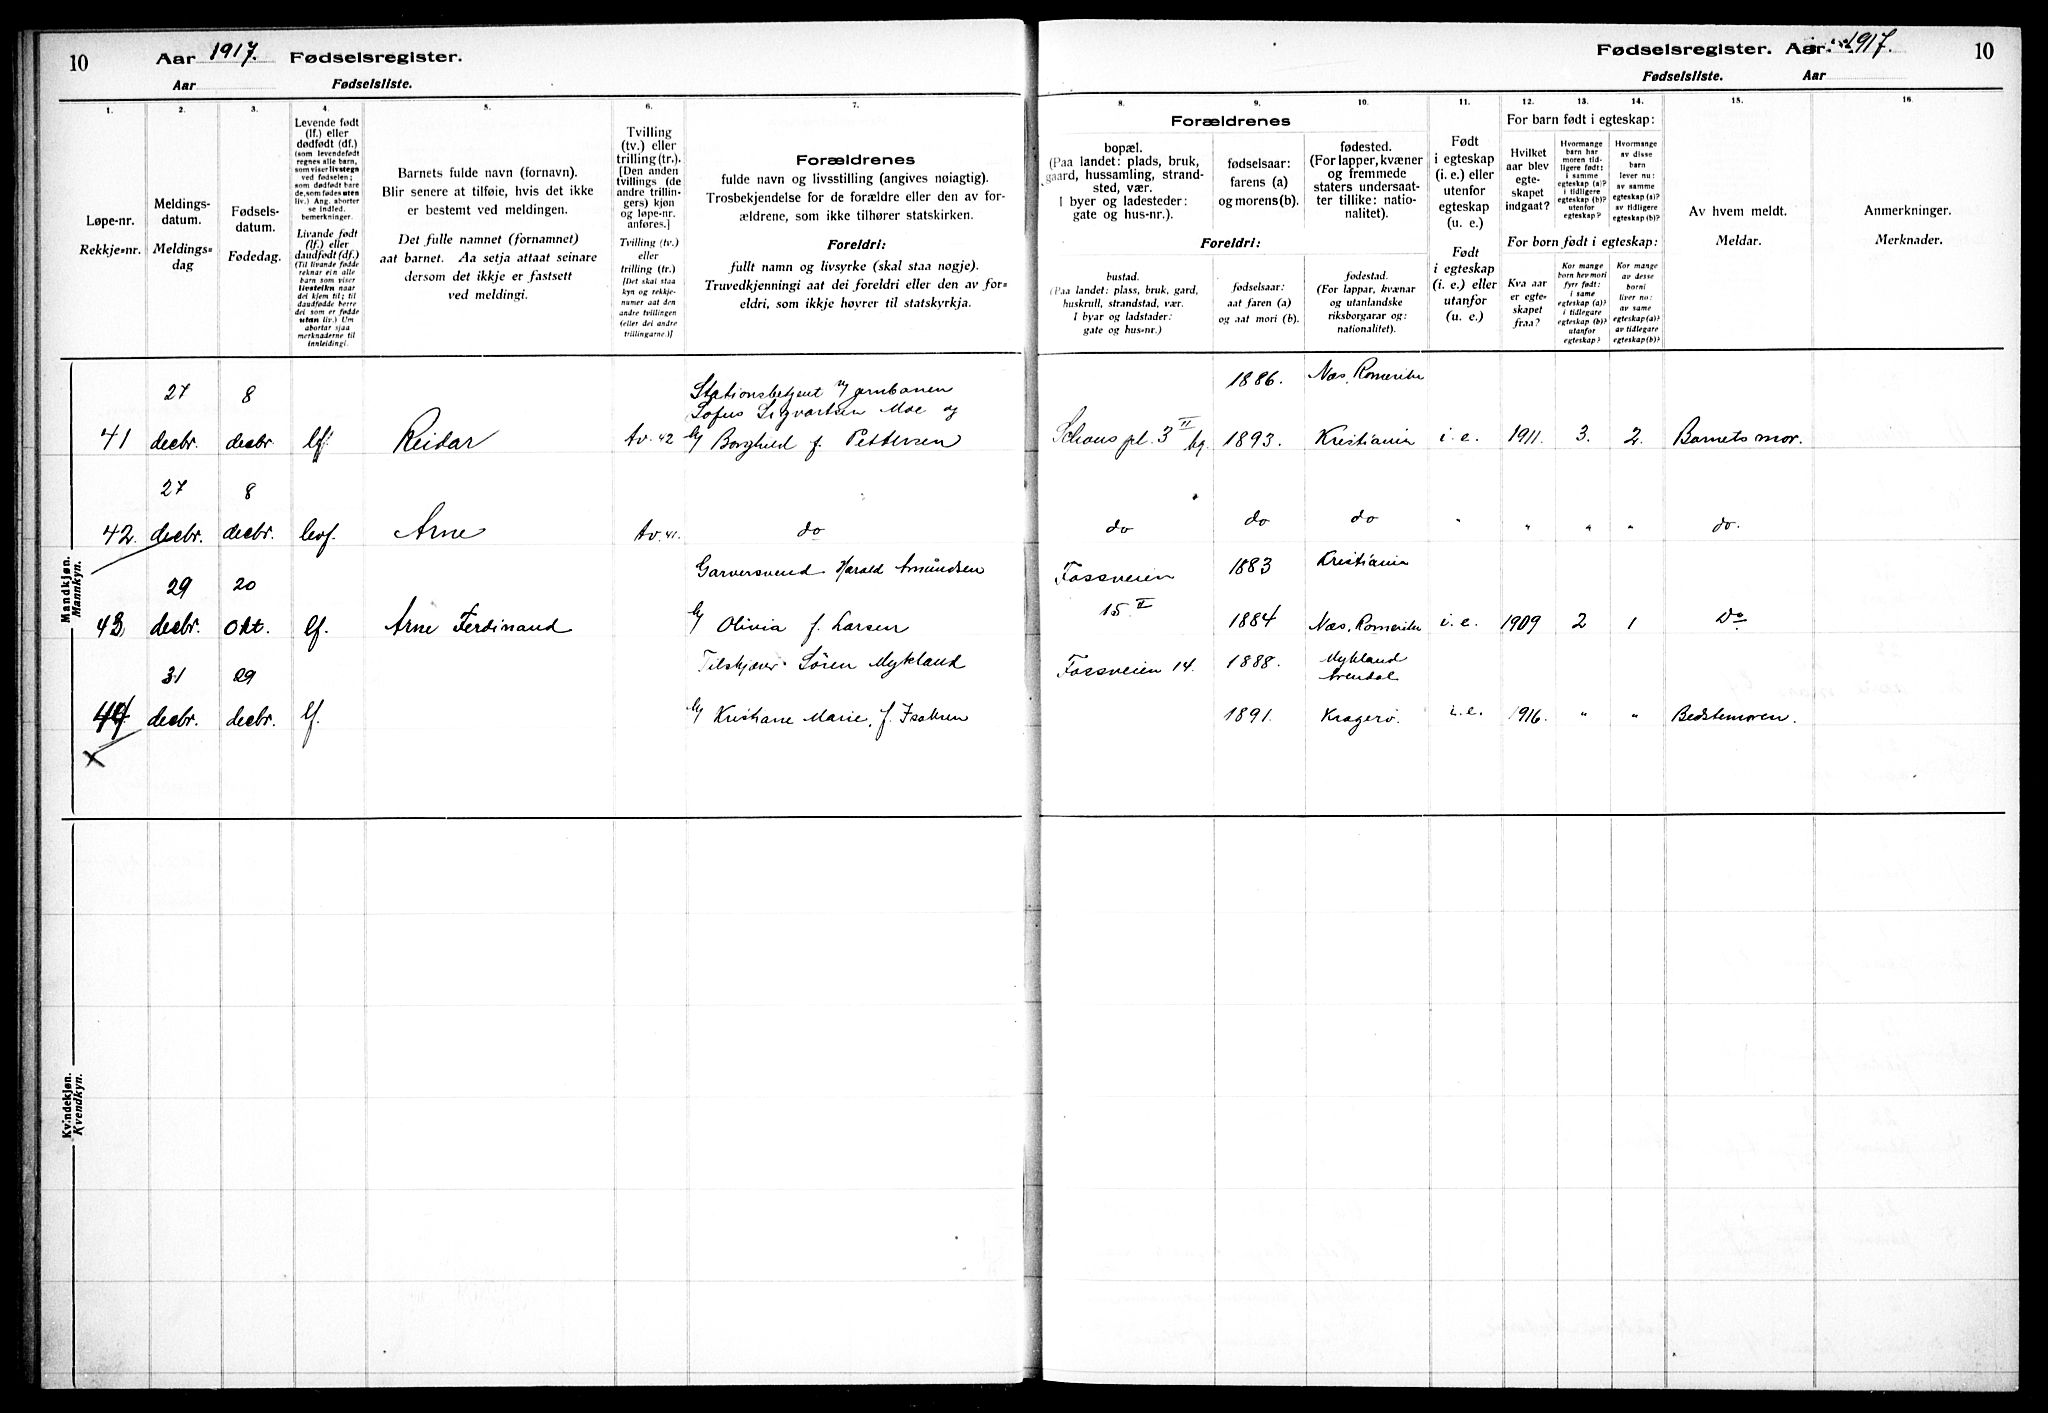 10 Aar 1917. Fødselsregister.
Aar Fødselsliste.
Fødselsregister. Aar 1917. 10
Fødselsliste. Aar
1. 2. 3. 4. 5. 6. 7. 8. 9. 10. 11. 12. 13. 14. 15. 16.
Løpe-nr.
Rekkje-nr.
Meldings-
datum.
Meldings-
dag
Fødsels-
datum.
Fødedag.
Levende født
(lf.) eller
dødfødt (df.)
(som levendefødt
regnes alle barn,
som viser livstegn
ved fødselen;
som dødfødt bare
de, som fødes uten
liv.) Ang. aborter
se indled.
bemerkninger.
Livande født
(lf.) eller
daudfødt (df.)
(Til livande fødde
reknar ein alle
barn som viser
livsteikn naar
dei kjem til; til
daudfødde berre
dei som er fødde
utan liv.) Um
abortar sjaa
merknaderne til
innleidingi.
Barnets fulde navn (fornavn).
Blir senere at tilføie, hvis det ikke
er bestemt ved meldingen.
Det fulle namnet (fornamnet)
aat barnet. Aa setja attaat seinare
dersom det ikkje er fastsett
ved meldingi.
Tvilling
(tv.) eller
trilling (tr.).
[Den anden
tvillings (de
andre trillin-
gers) kjøn
og løpe-nr.
anføres.]
Tvilling (tv.)
eller
trilling (tr.)
[Det skal staa
kyn og rekkje-
numer aat den
andre tvillingen
(eller dei andre
trillingarne.)]
Forældrenes
fulde navn og livsstilling (angives nøiagtig).
Trosbekjendelse for de forældre eller den av for-
ældrene, som ikke tilhører statskirken.
Foreldri:
fullt namn og livsyrke (skal staa nøgje).
Truvedkjenningi aat dei foreldri eller den av for-
eldri, som ikkje høyrer til statskyrkja.
Forældrenes
bopæl.
(Paa landet: plads, bruk,
gaard, hussamling, strand-
sted, vær.
I byer og ladesteder:
gate og hus-nr.).
fødselsaar:
farens (a)
og morens (b).
fødested.
(For lapper, kvæner
og fremmede
staters undersaat-
ter tillike: natio-
nalitet).
Foreldri:
bustad.
(Paa landet: plass, bruk, gard,
huskrull, strandstad, vær.
I byar og ladstader:
gate og hus-nr.)
fødselsaar:
aat faren (a)
og aat mori (b).
fødestad.
(For lappar, kvænar
og utanlandske
riksborgarar og:
nationalitet).
Født
i egteskap
(i. e.) eller
utenfor
egteskap
(u. e.)
Født
i egteskap
(i. e.) eller
utanfor
(u. e.)
For barn født i egteskap:
Hvilket
aar blev
egte-
skapet
indgaat?
Hvormange
barn har
moren tid-
ligere født:
i samme
egteskap (a)?
i tidligere
egteskap (b)?
utenfor
egteskap?
Hvormange
av disse
barn
lever nu:
av samme
egteskap (a)?
av tidligere
egteskap (b)?
For born født i egteskap:
Kva aar
er egte-
skapet
fraa?
Kor mange
born hev mori
fyrr født:
i same
egteskap (a)?
i tidlegare
egteskap (b)?
utanfor
egteskap?
Kor mange
av desse
borni
liver no:
av same
egteskap (a)?
av tidlegare
egteskap (b)?
Av hvem meldt.
Meldar.
Anmerkninger.
Merknader.
Mandkjøn.
Mannkyn.
27 8 Stationsbetjent v/ jernbanen 1886. Næs, Romerike
Sofus Sigvartsen Moe og
41 decbr. decbr. lf. Reidar tv. 42 h/ Borghild f. Pettersen Schous pl. 3 II bg. 1893. Kristiania i. e. 1911. 3. 2. Barnets mor.
27 8
42. decbr. decbr. levf. Arne tv. 41. do do do do " " " " do.
29 20 Garversvend Harald Amundsen Fossveien 1883 Kristiania
43 decbr. Okt. lf. Arne Ferdinand h/ Olivia f. Larsen 15 II 1884 Næs, Romerike i. e. 1909 2 1 Do
31 29 Tilskjærer Søren Mykland Fossveien 14. 1888. Mykland
Arendal
44 decbr. decbr. lf. h/ Kristiane Marie, f. Isaksen 1891. Kragerø. i. e. 1916. " " Bedstemoren.
x
Kvindekjøn.
Kvendkyn.